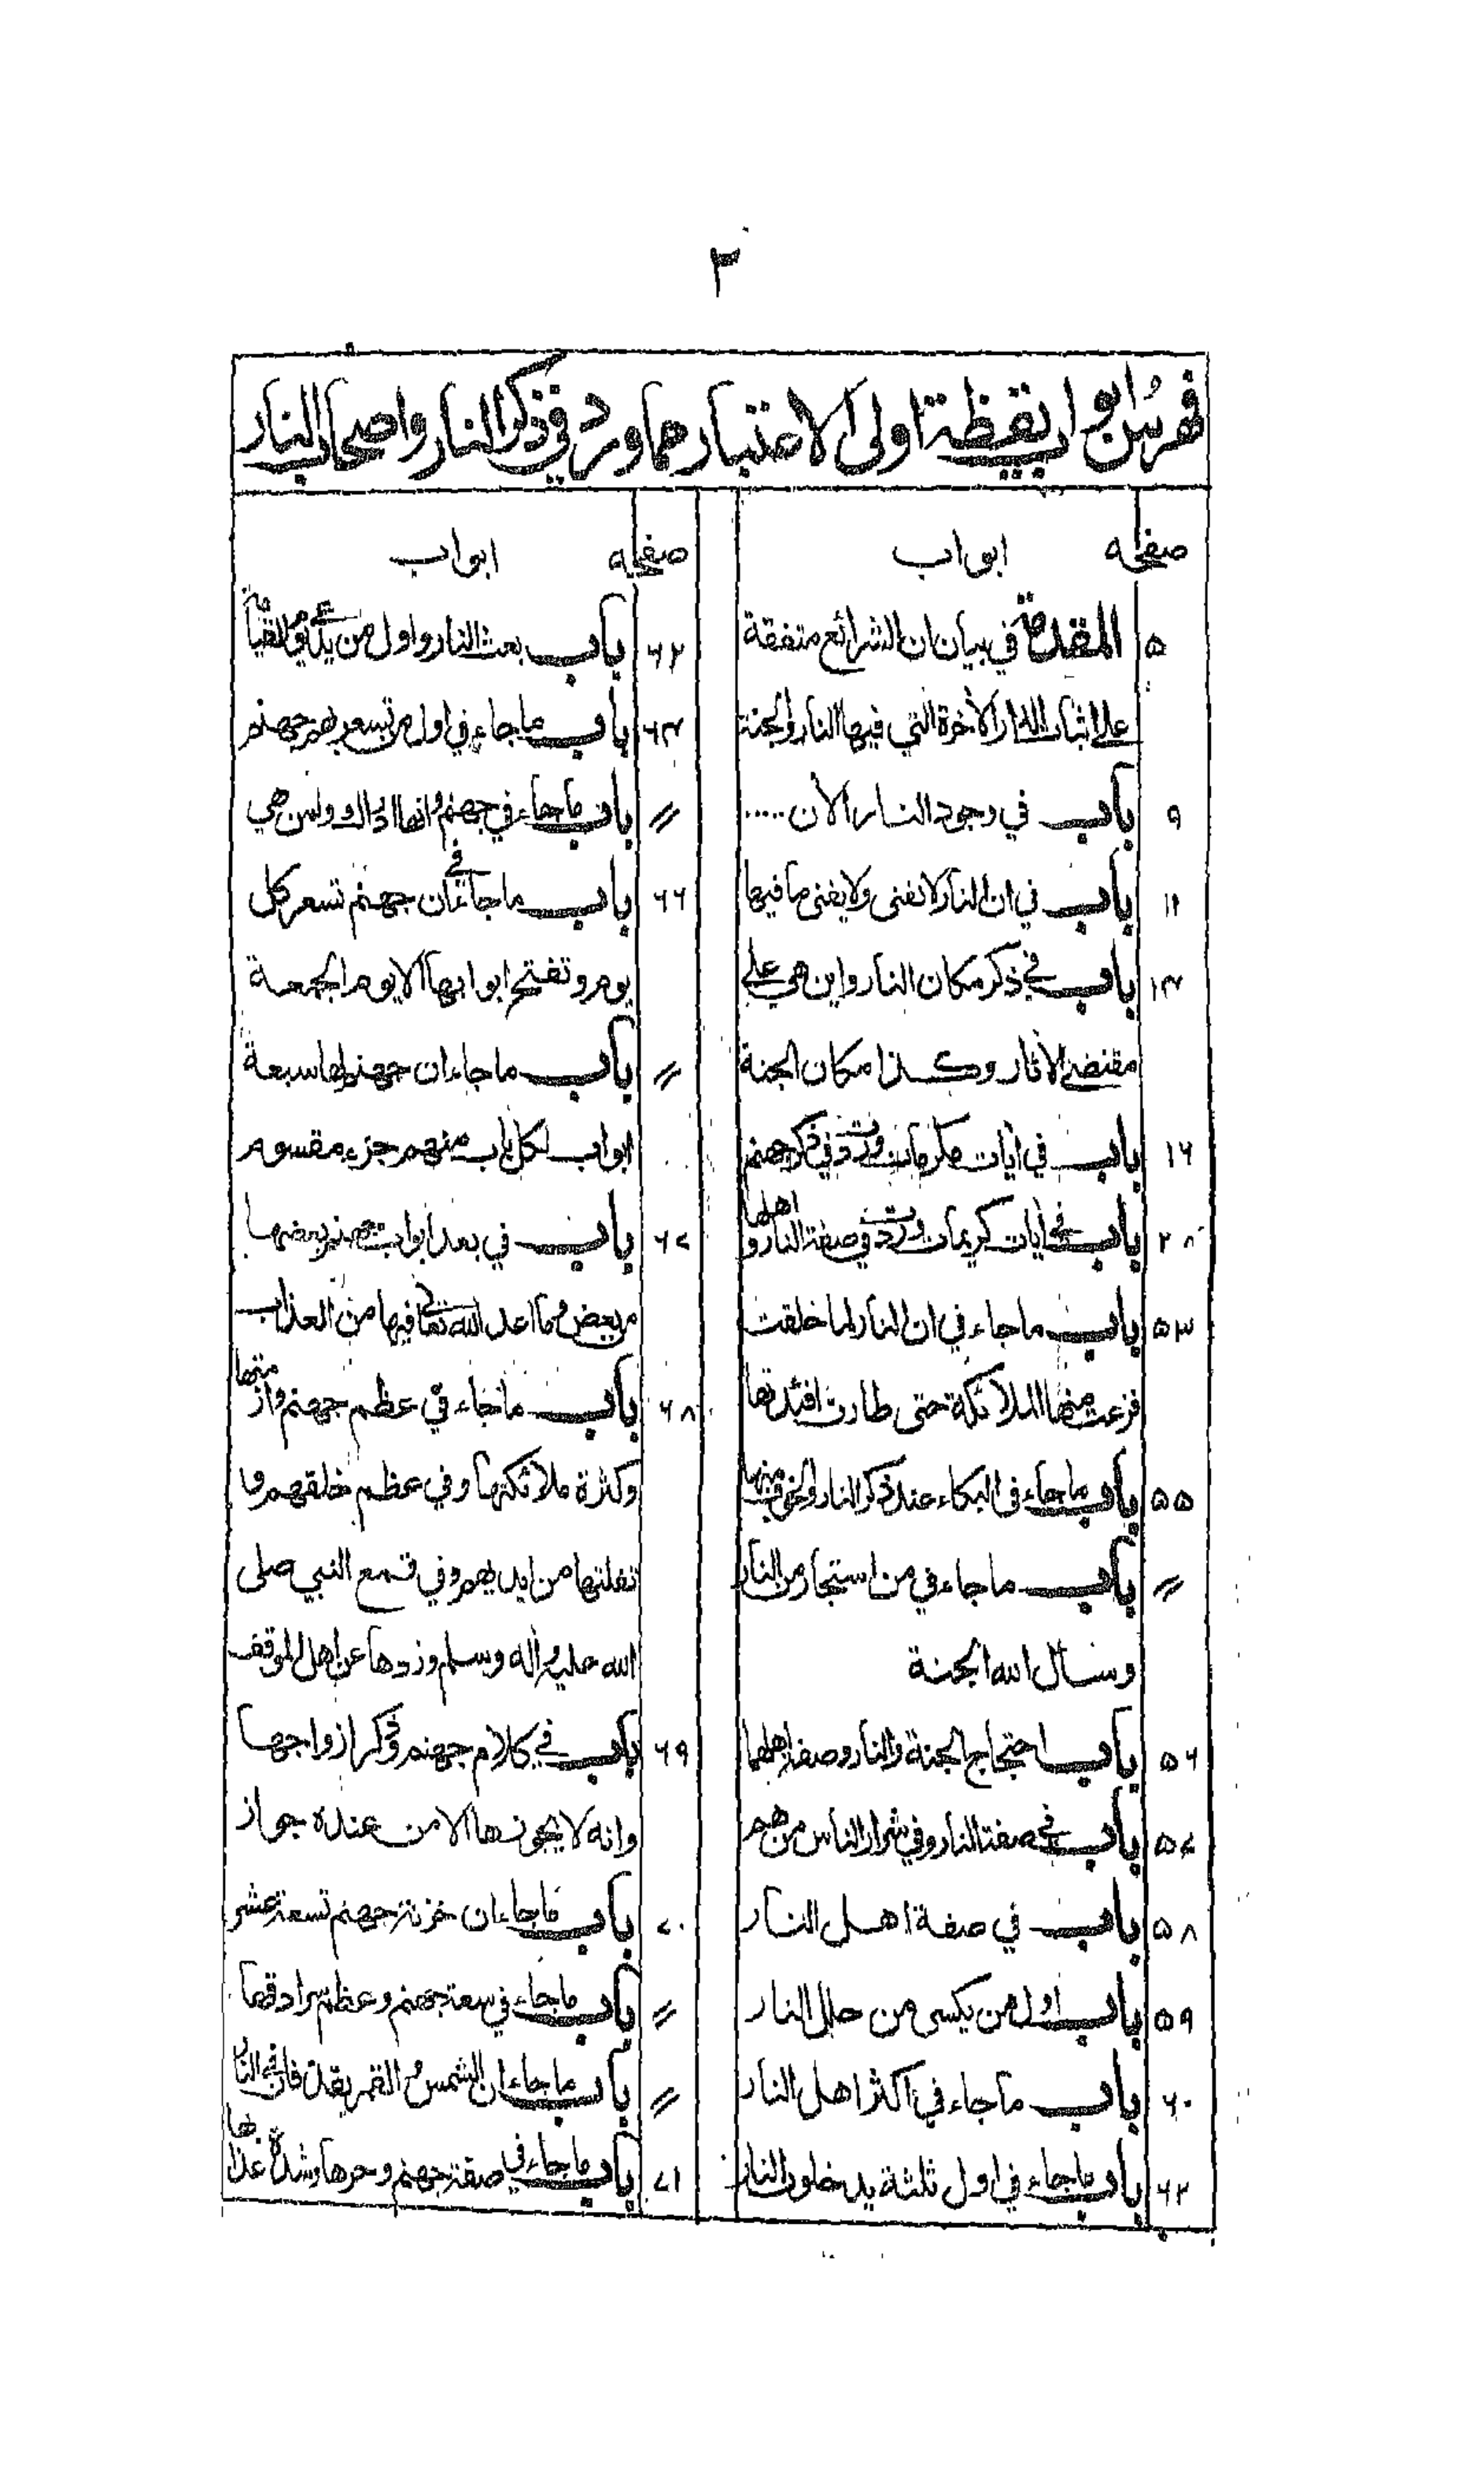 ٣
فهرس ابواب يقظة اولى الاعتبار مما ورد في ذكر النار واصحاب النار
صفحه ابواب
٥ المقدمة في بيان ان الشرائع متفقة
على اثبات الدار الاخرة التي فيها النار والجنة
٩ باب في وجود النار الان .....
١١ باب في ان النار لا تفنى ولا يفنى ما فيها
١٣ باب في ذكر مكان النار واين هي على
مقتضى الاثار وكذا مكان الجنة
١٦ باب في ايات مكرمات وردت في ذكر جهنم
٢٨ باب في ايات كريمات وردت في صفة النار واهلها
٥٣ باب ما جاء في ان النار لما خلقت
فزعت منها الملائكة حتى طارت افئدتها
٥٥ باب ما جاء في البكاء عند ذكر النار والخوف منها
〃 باب ما جاء في من استجار من النار
وسأل الله الجنة
٥٦ باب احتجاج الجنة والنار وصفة اهلها
٥٧ باب في صفة النار وفي شرار الناس من هم
٥٨ باب في صفة اهل النار
٥٩ باب اول من يكسى من حلل النار
٦٠ باب ما جاء في اكثر اهل النار
٦٢ باب ما جاء في اول ثلثة يدخلون النار
صفحه ابواب
٦٢ باب بعث النار واول من يدعى يوم القيامة
٦٣ باب ما جاء في اول من تسعر بهم جهنم
〃 باب ما جاء في جهنم وانها ادراك ولمن هي
٦٦ باب ما جاء في ان جهنم تسعر كل
يوم وتفتح ابوابها الا يوم الجمعة
〃 باب ما جاء ان جهنم لها سبعة
ابواب لكل باب منهم جزء مقسوم
٦٧ باب في بعد ابواب جهنم بعضها
من بعض وما اعد الله تعالى فيها من العذاب
٦٨ باب ما جاء في عظم جهنم وازمتها
وكثرة ملائكتها وفي عظم خلقهم و
تفلتها من ايديهم وفي قمع النبي صلى
الله عليه واله وسلم وزدها عن اهل الموقف
٦٩ باب في كلام جهنم وذكر ازواجها
وانه لا يجوزها الا من عنده جواز
٧٠ باب ما جاء ان خزنة جهنم تسعة عشر
〃 باب ما جاء في سعة جهنم وعظم سرادقها
〃 باب ما جاء ان الشمس والقمر يقذفان في النار
٧١ باب ما جاء في صفة جهنم وحرها وشدة عذابها